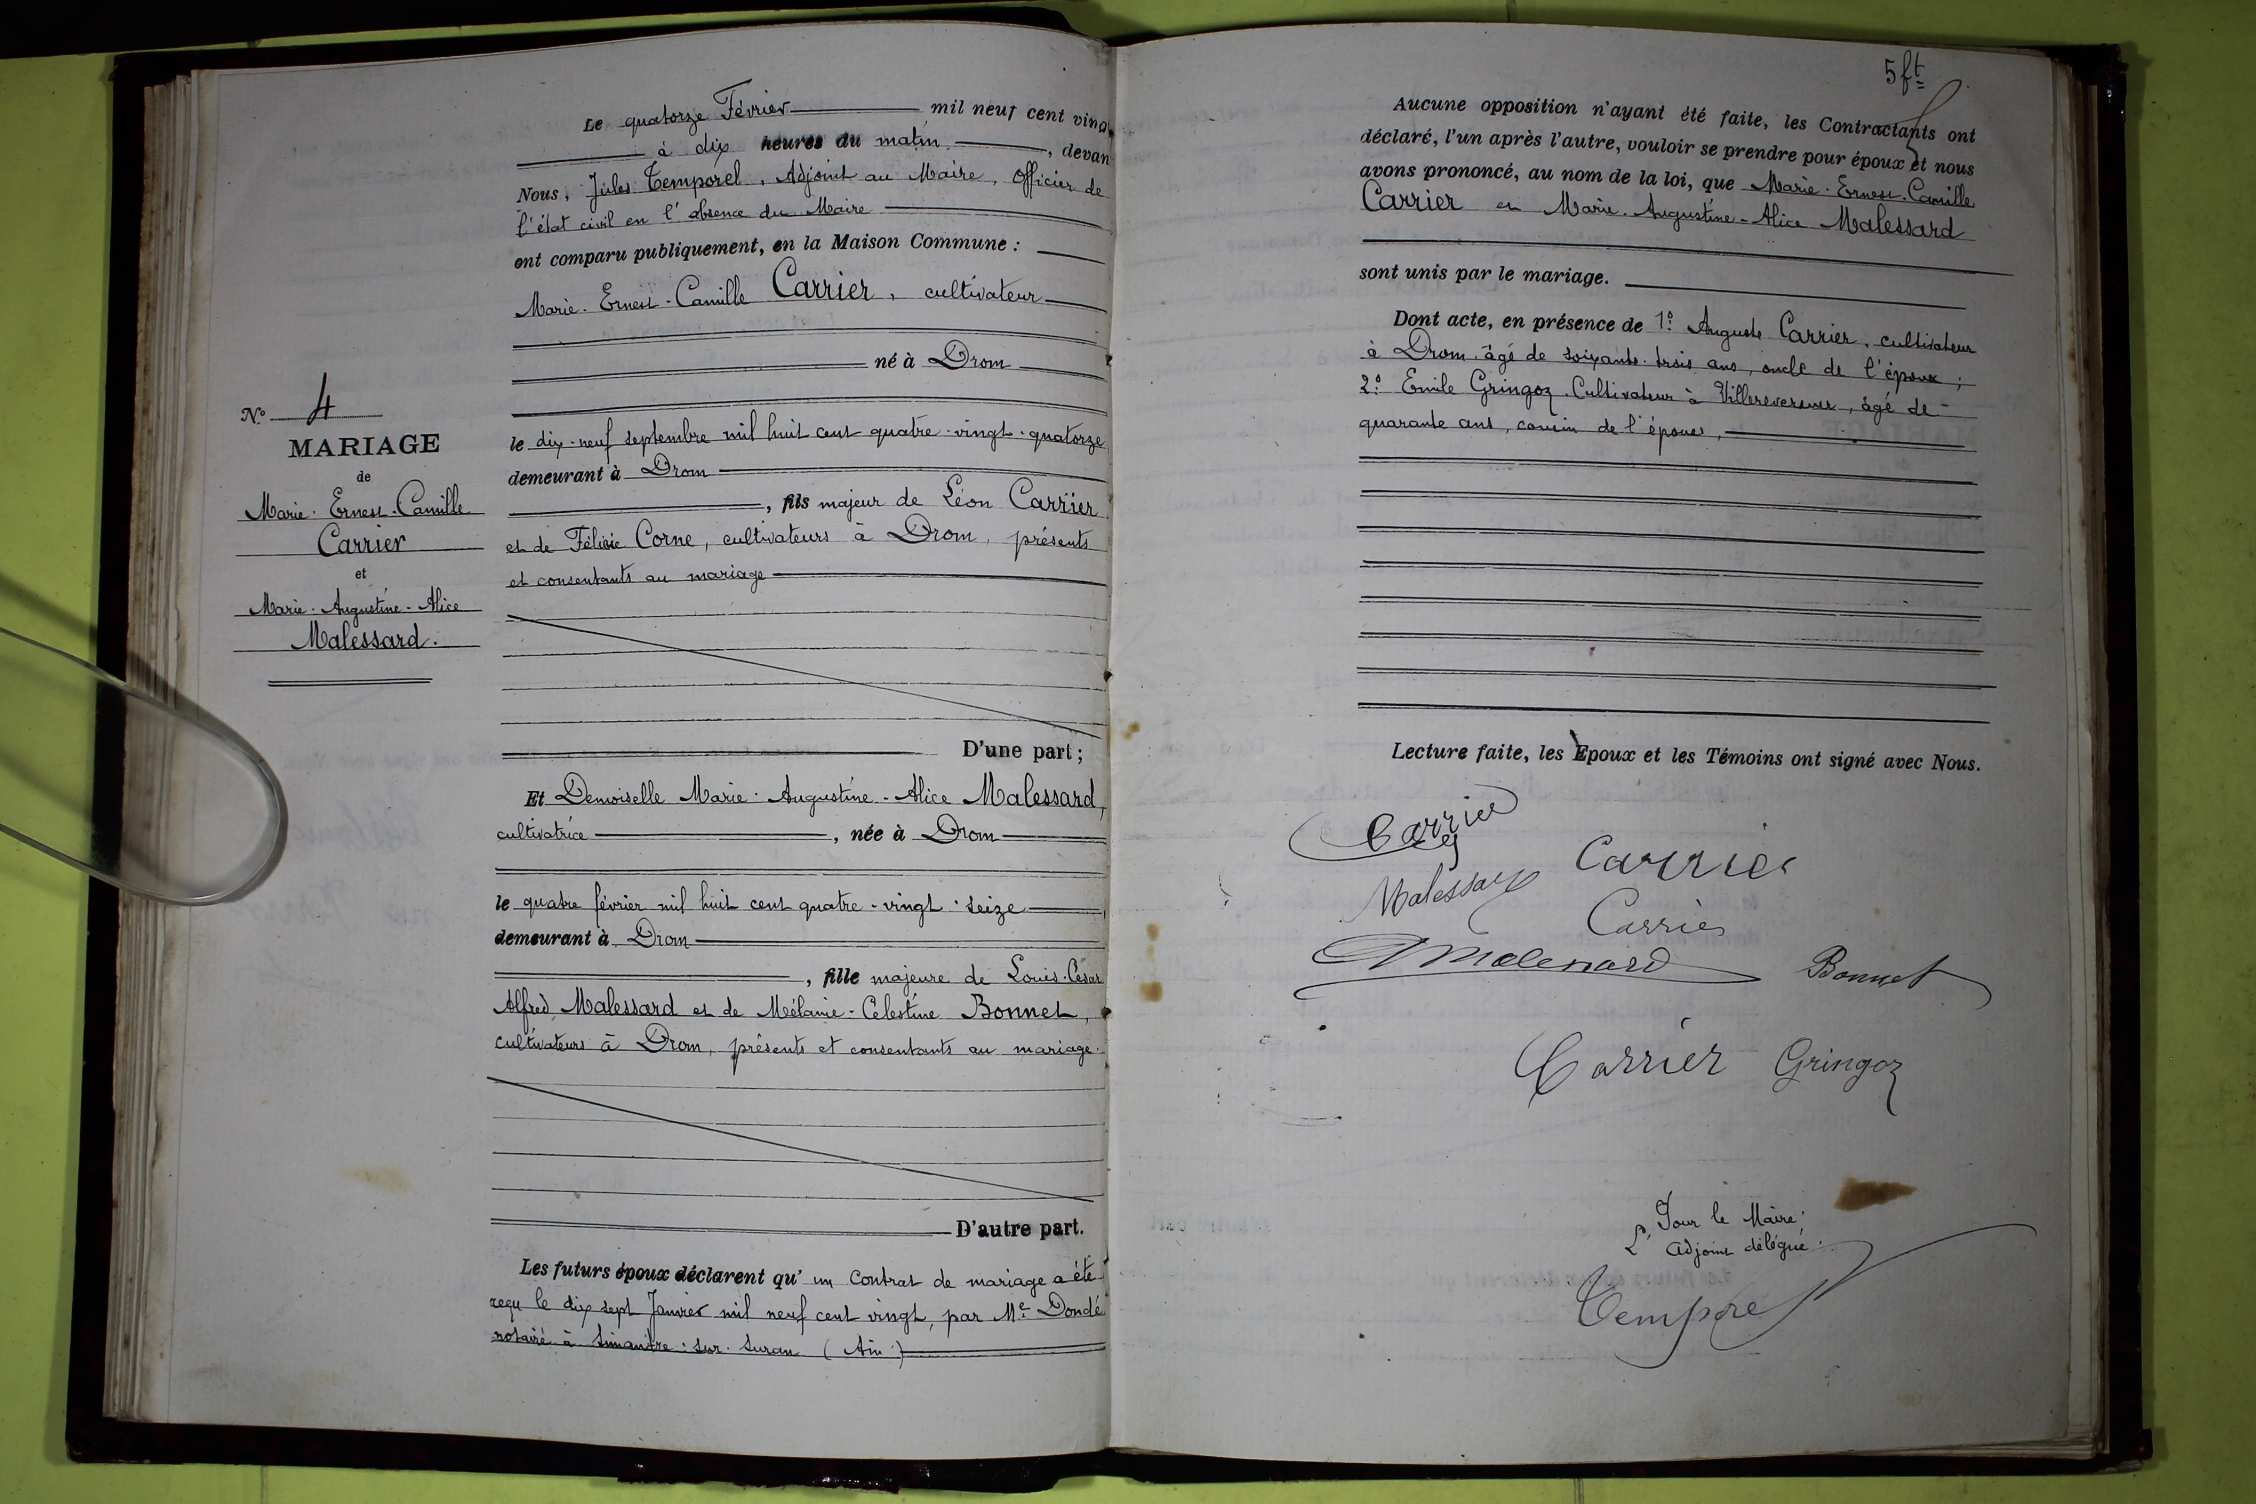 Le quatorze Février mil neuf cent vingt
à dix heures du matin, devan
Nous, Jules Temporel, Adjoint au Maire, Officier de
l'état civil en l'absence du Maire
ont comparu publiquement, en la Maison Commune :
Marie-Ernest-Camille Carrier, cultivateur
né à Drom
le dix-neuf septembre mil huit cent quatre-vingt-quatorze
demeurant à Drom
, fils majeur de Léon Carrier
et de Félicie Corne, cultivateurs à Drom, présents
et consentants au mariage
D'une part ;
Et Demoiselle Marie-Augustine-Alice Malessard,
cultivatrice, née à Drom
le quatre février mil huit cent quatre-vingt-seize
demeurant à Drom
, fille majeure de Louis-César
Alfred Malessard et de Mélanie-Célestine Bonnet,
cultivateurs à Drom, présents et consentants au mariage.
D'autre part.
Les futurs époux déclarent qu'un contrat de mariage a été
reçu le dix sept Janvier mil neuf cent vingt, par Me Dondé
notaire à Simandre-sur-Suran (Ain)
No 4
MARIAGE
de
Marie-Ernest-Camille
Carrier
et
Marie-Augustine-Alice
Malessard.
5 ft
Aucune opposition n'ayant été faite, les Contractants ont
déclaré, l'un après l'autre, vouloir se prendre pour époux et nous
avons prononcé, au nom de la loi, que Marie-Ernest-Camille
Carrier et Marie-Augustine-Alice Malessard
sont unis par le mariage.
Dont acte, en présence de 1o Auguste Carrier, cultivateur
à Drom, âgé de soixante-trois ans, oncle de l'époux ;
2o Emile Gringoz, Cultivateur à Villereversure, âgé de
quarante ans, cousin de l'épouse,
Lecture faite, les Epoux et les Témoins ont signé avec Nous.
Carrier
Malessard
Carrier
Carrier
Malessard
Bonnet
Carrier
Gringoz
Pour le Maire :
L'Adjoint délégué :
Temporel